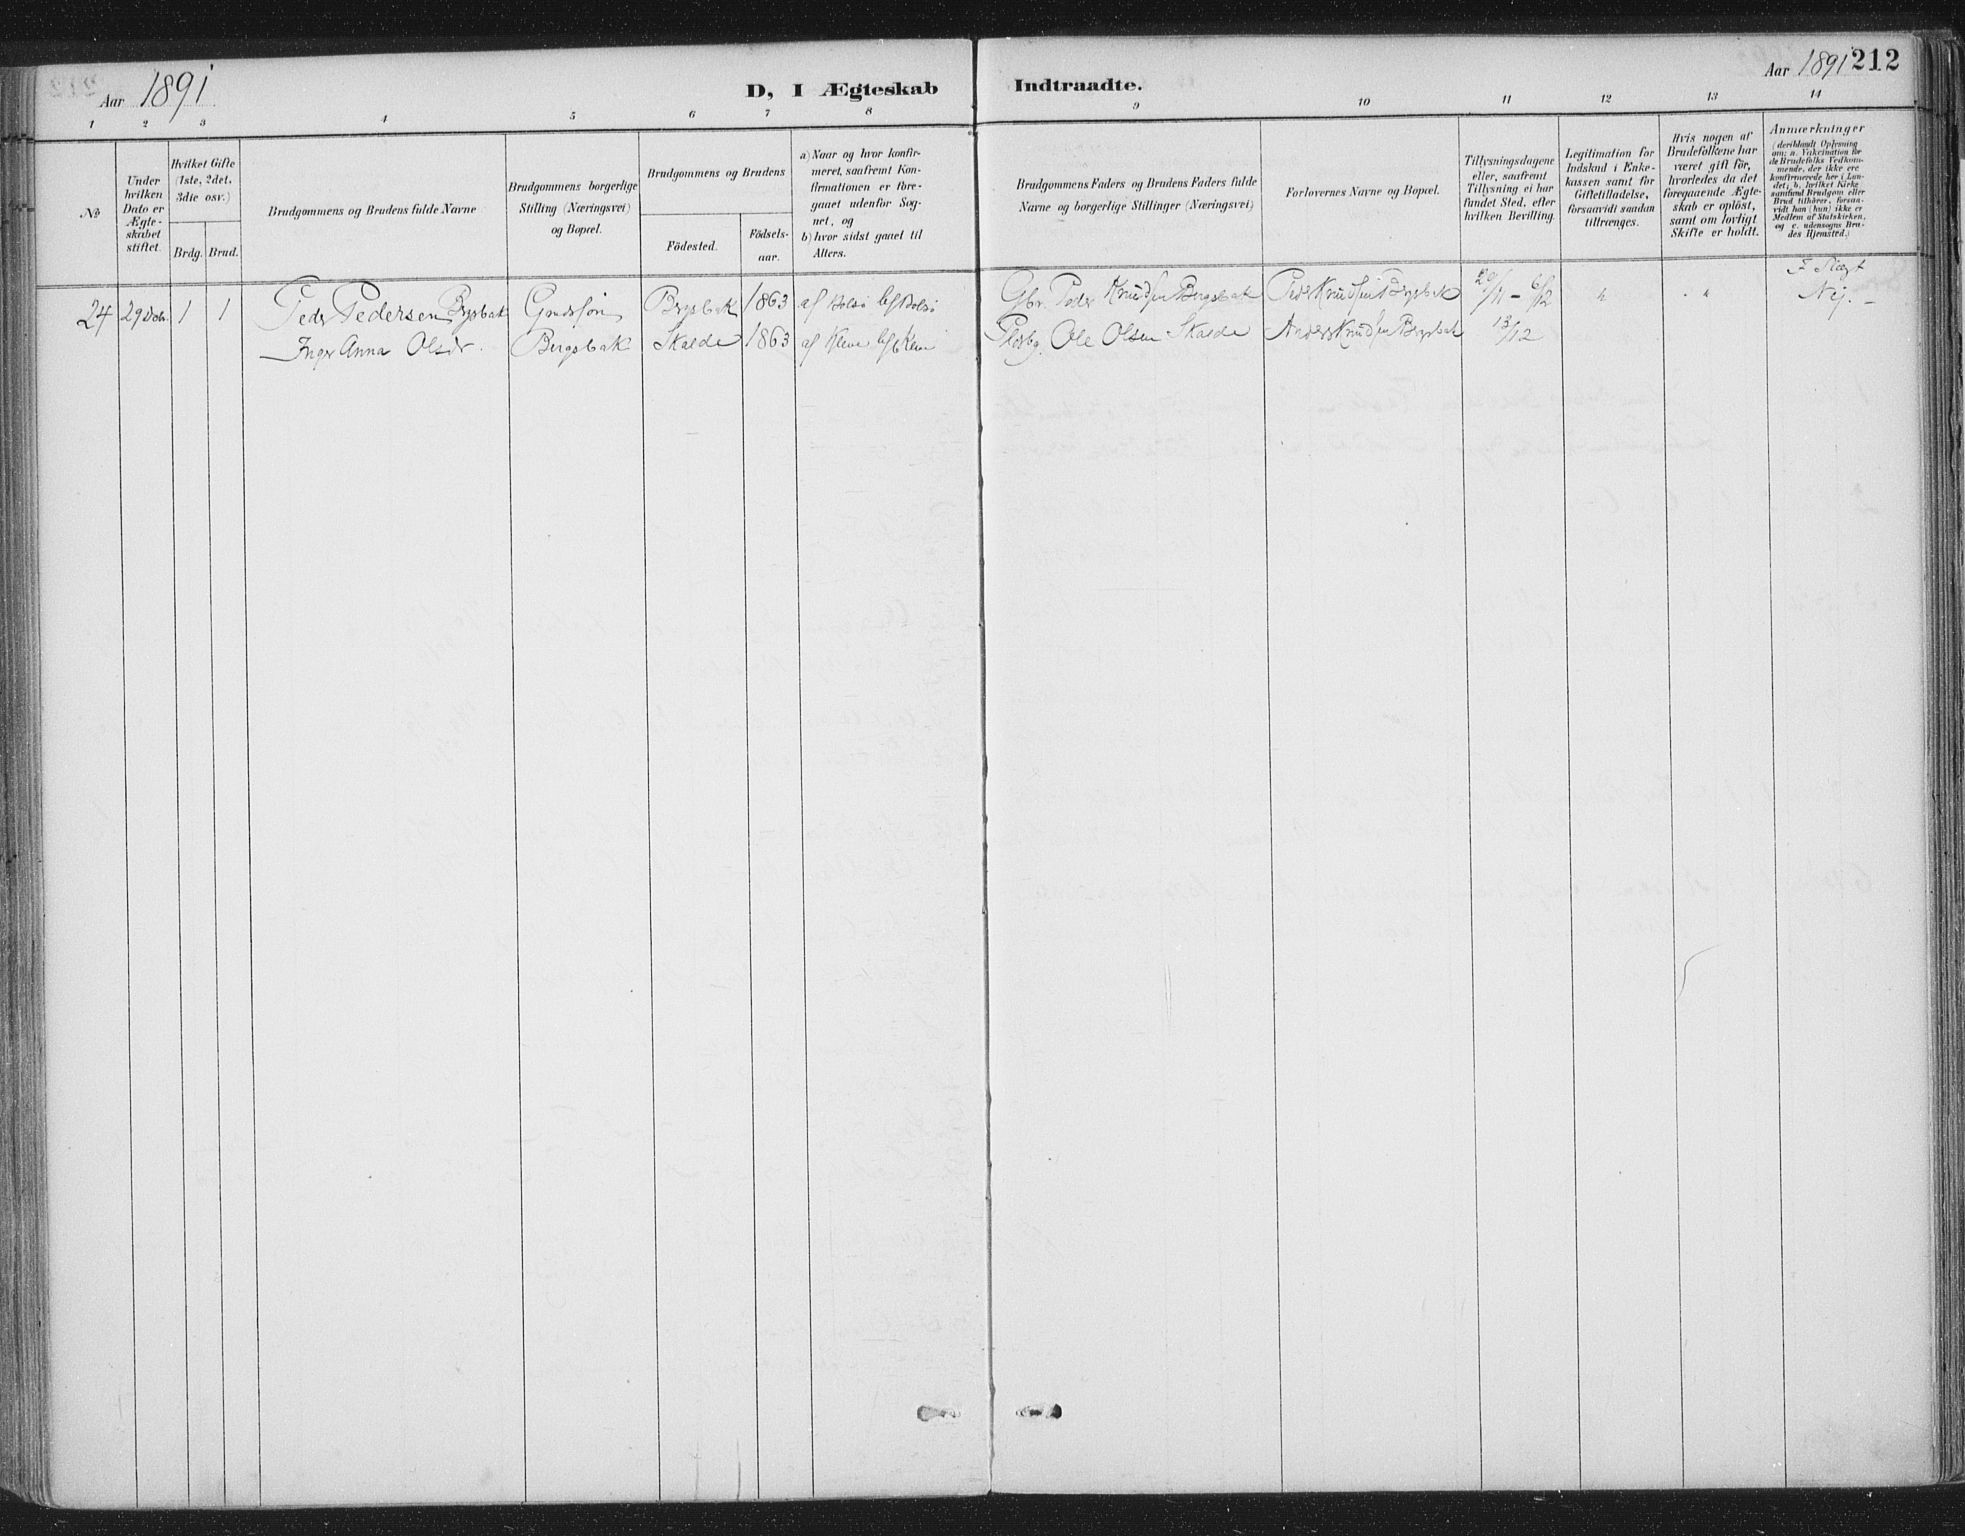 Aar 1891
D, I Ægteskab Indtraadte.
Aar 1891 212
1 2 3 4 5 6 7 8 9 10 11 12 13 14
No
Under hvilken Dato er Ægte-skabet stiftet.
Hvilket Gifte (1ste, 2det, 3die osv.)
Brdg. Brud.
Brudgommens og Brudens fulde Navne
Brudgommens borgerlige Stilling (Næringsvei) og Bopæl.
Brudgommens og Brudens
Födested.
Födsels-aar.
a) Naar og hvor konfir-meret, saafremt Kon-firmationen er fore-gaaet udenfor Sog-net, og
b) hvor sidst gaaet til Alters.
Brudgommens Faders og Brudens Faders fulde Navne og borgerlige Stillinger (Næringsvei)
Forlovernes Navne og Bopæl.
Tillysningsdagene eller, saafremt Tillysning ei har fundet Sted, efter hvilken Bevilling.
Legitimation for Indskud i Enke-kassen samt for Giftetilladelse, forsaavidt saadan tiltrænges.
Hvis nogen af Brudefolkene har været gift för, hvorledes da det foregaaende Ægte-skab er oplöst, samt om lovligt Skifte er holdt.
Anmærkninger (deriblandt Oplysning om: a. Vakcination for de Brudefolks Vedkom-mende, der ikke ere konfirmerede her i Lan-det; b. hvilket Kirke-samfund Brudgom eller Brud tilhører, forsaa-vidt han (hun) ikke er Medlem af Statskirken, og c. udensogns Bru-des Hjemsted.)
24 29 Dcbr. 1 1 Peder Pedersen Bergsbak Gaardsön Bergsbak 1863 af Bolsö Gbr. Peder Knudsen Bergsbak Peder Knudsen Bergsbak 29/11 - 6/12 " " I Slægt Nej.
Inger Anna Olsdr. Bergsbak Skalde 1863 af Kleve Ole Olsen Skalde Anders Knudsen Bergsbak 13/12